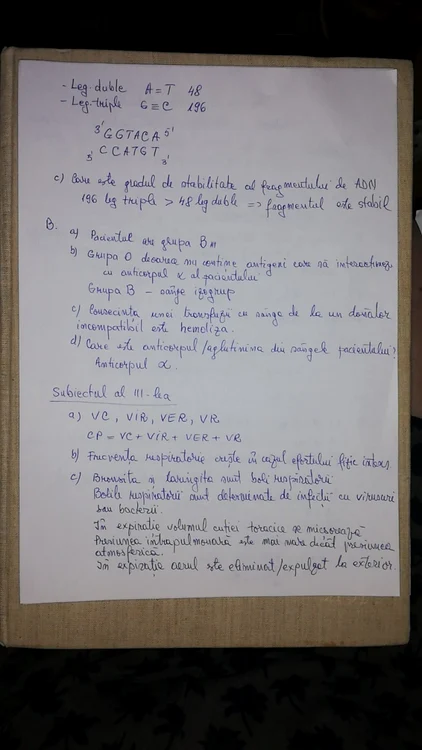 - Leg. duble A = T 48
- Leg. triple G ≡ C 196
3' GGTACA 5'
5' CCATGT 3'
c) Care este gradul de stabilitate al fragmentului de ADN
196 leg triple > 48 leg duble => fragmentul este stabil
B.
a) Pacientul are grupa B
b) Grupa O deoarece nu conține antigeni care să interacționeze
cu anticorpul α al pacientului
Grupa B - sânge izogrup
c) Consecința unei transfuzii cu sânge de la un donator
incompatibil este hemoliza.
d) Care este anticorpul / aglutinina din sângele pacientului?
Anticorpul α.
Subiectul al III-lea
a) VC, VIR, VER, VR
CP = VC + VIR + VER + VR
b) Frecvența respiratorie crește în cazul efortului fizic intens
c) Bronșita și laringita sunt boli respiratorii
Bolile respiratorii sunt determinate de infecții cu virusuri
sau bacterii.
În expirație volumul cutiei toracice se micșorează
Presiunea intrapulmonară este mai mare decât presiunea
atmosferică.
În expirație aerul este eliminat/expulzat la exterior.